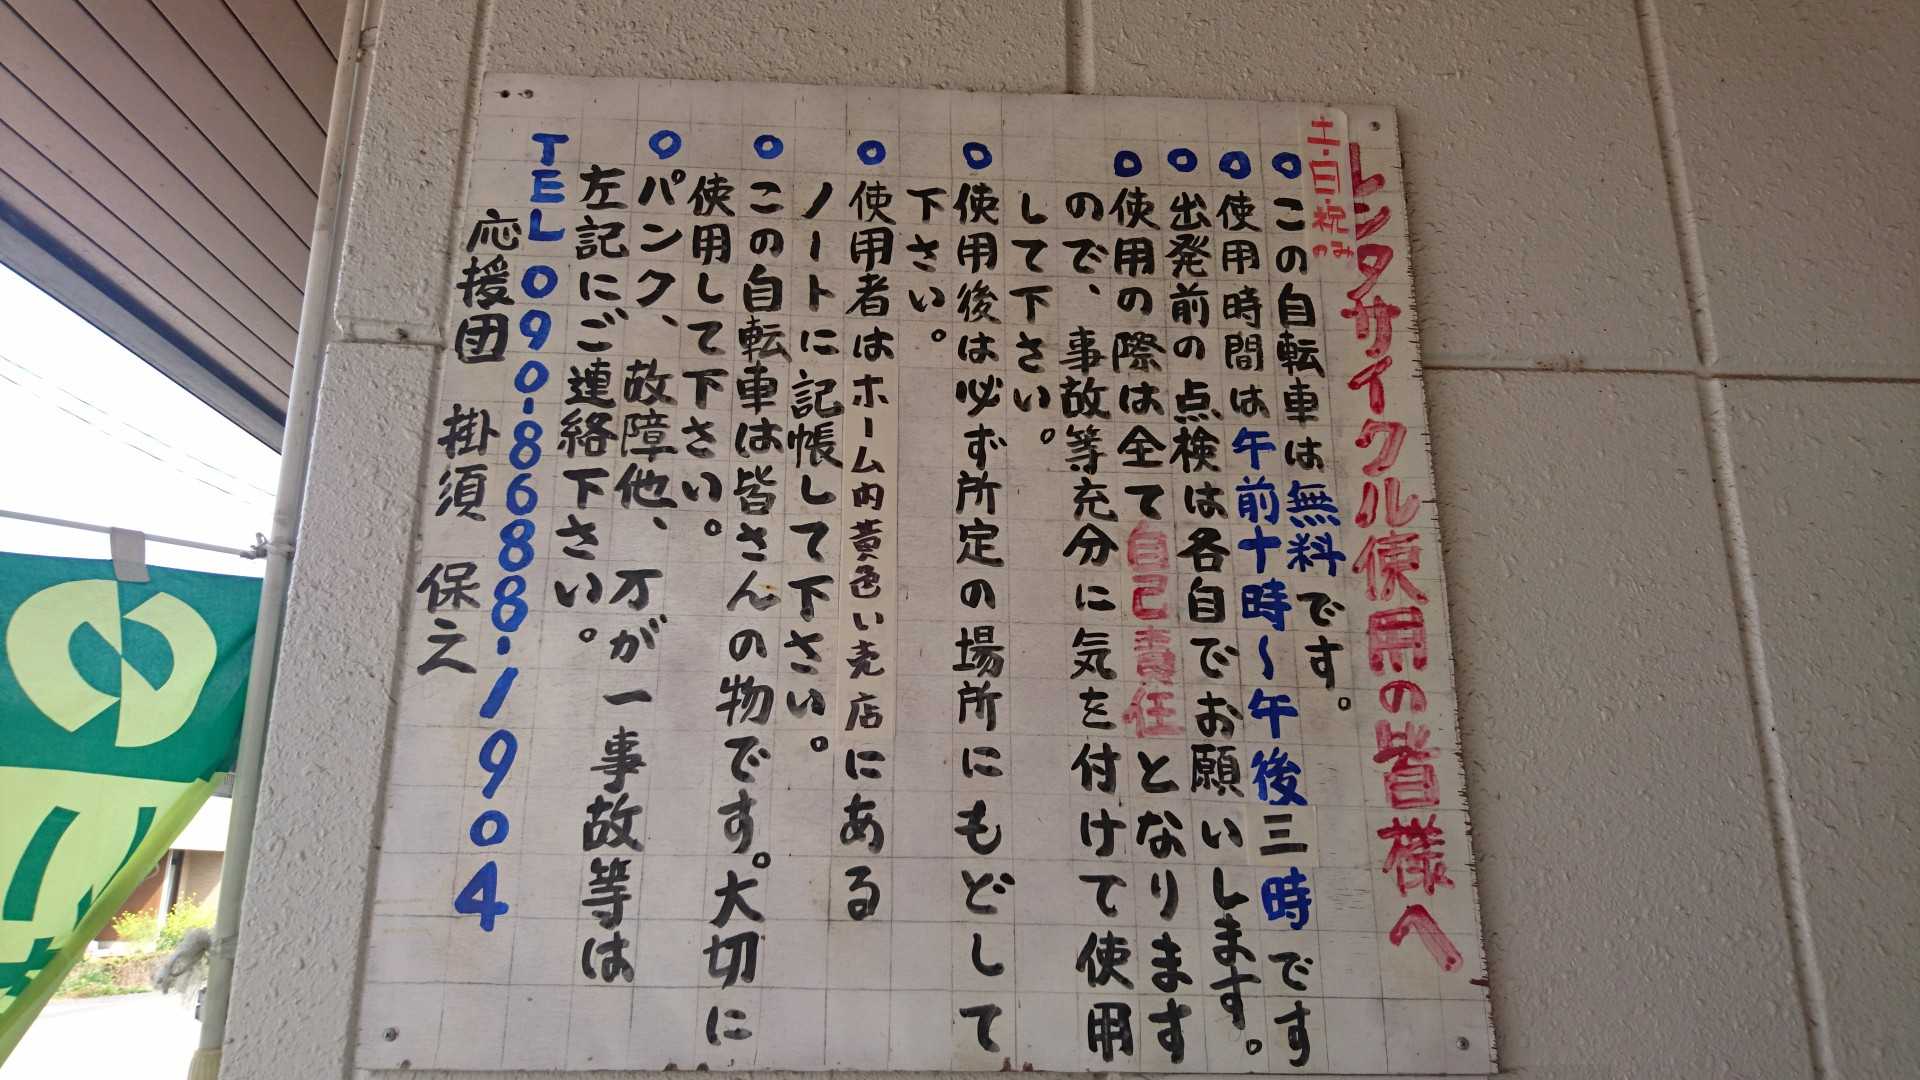 レンタサイクル使用の皆様へ
土・日・祝のみ
○この自転車は無料です。
○使用時間は午前十時～午後三時です
○出発前の点検は各自でお願いします。
○使用の際は全て自己責任となります
ので、事故等充分に気を付けて使用
して下さい。
○使用後は必ず所定の場所にもどして
下さい。
○使用者はホーム内黄色い売店にある
ノートに記帳して下さい。
○この自転車は皆さんの物です。大切に
使用して下さい。
○パンク、故障他、万が一事故等は
左記にご連絡下さい。
TEL 090-8688-1904
応援団 掛須 保之